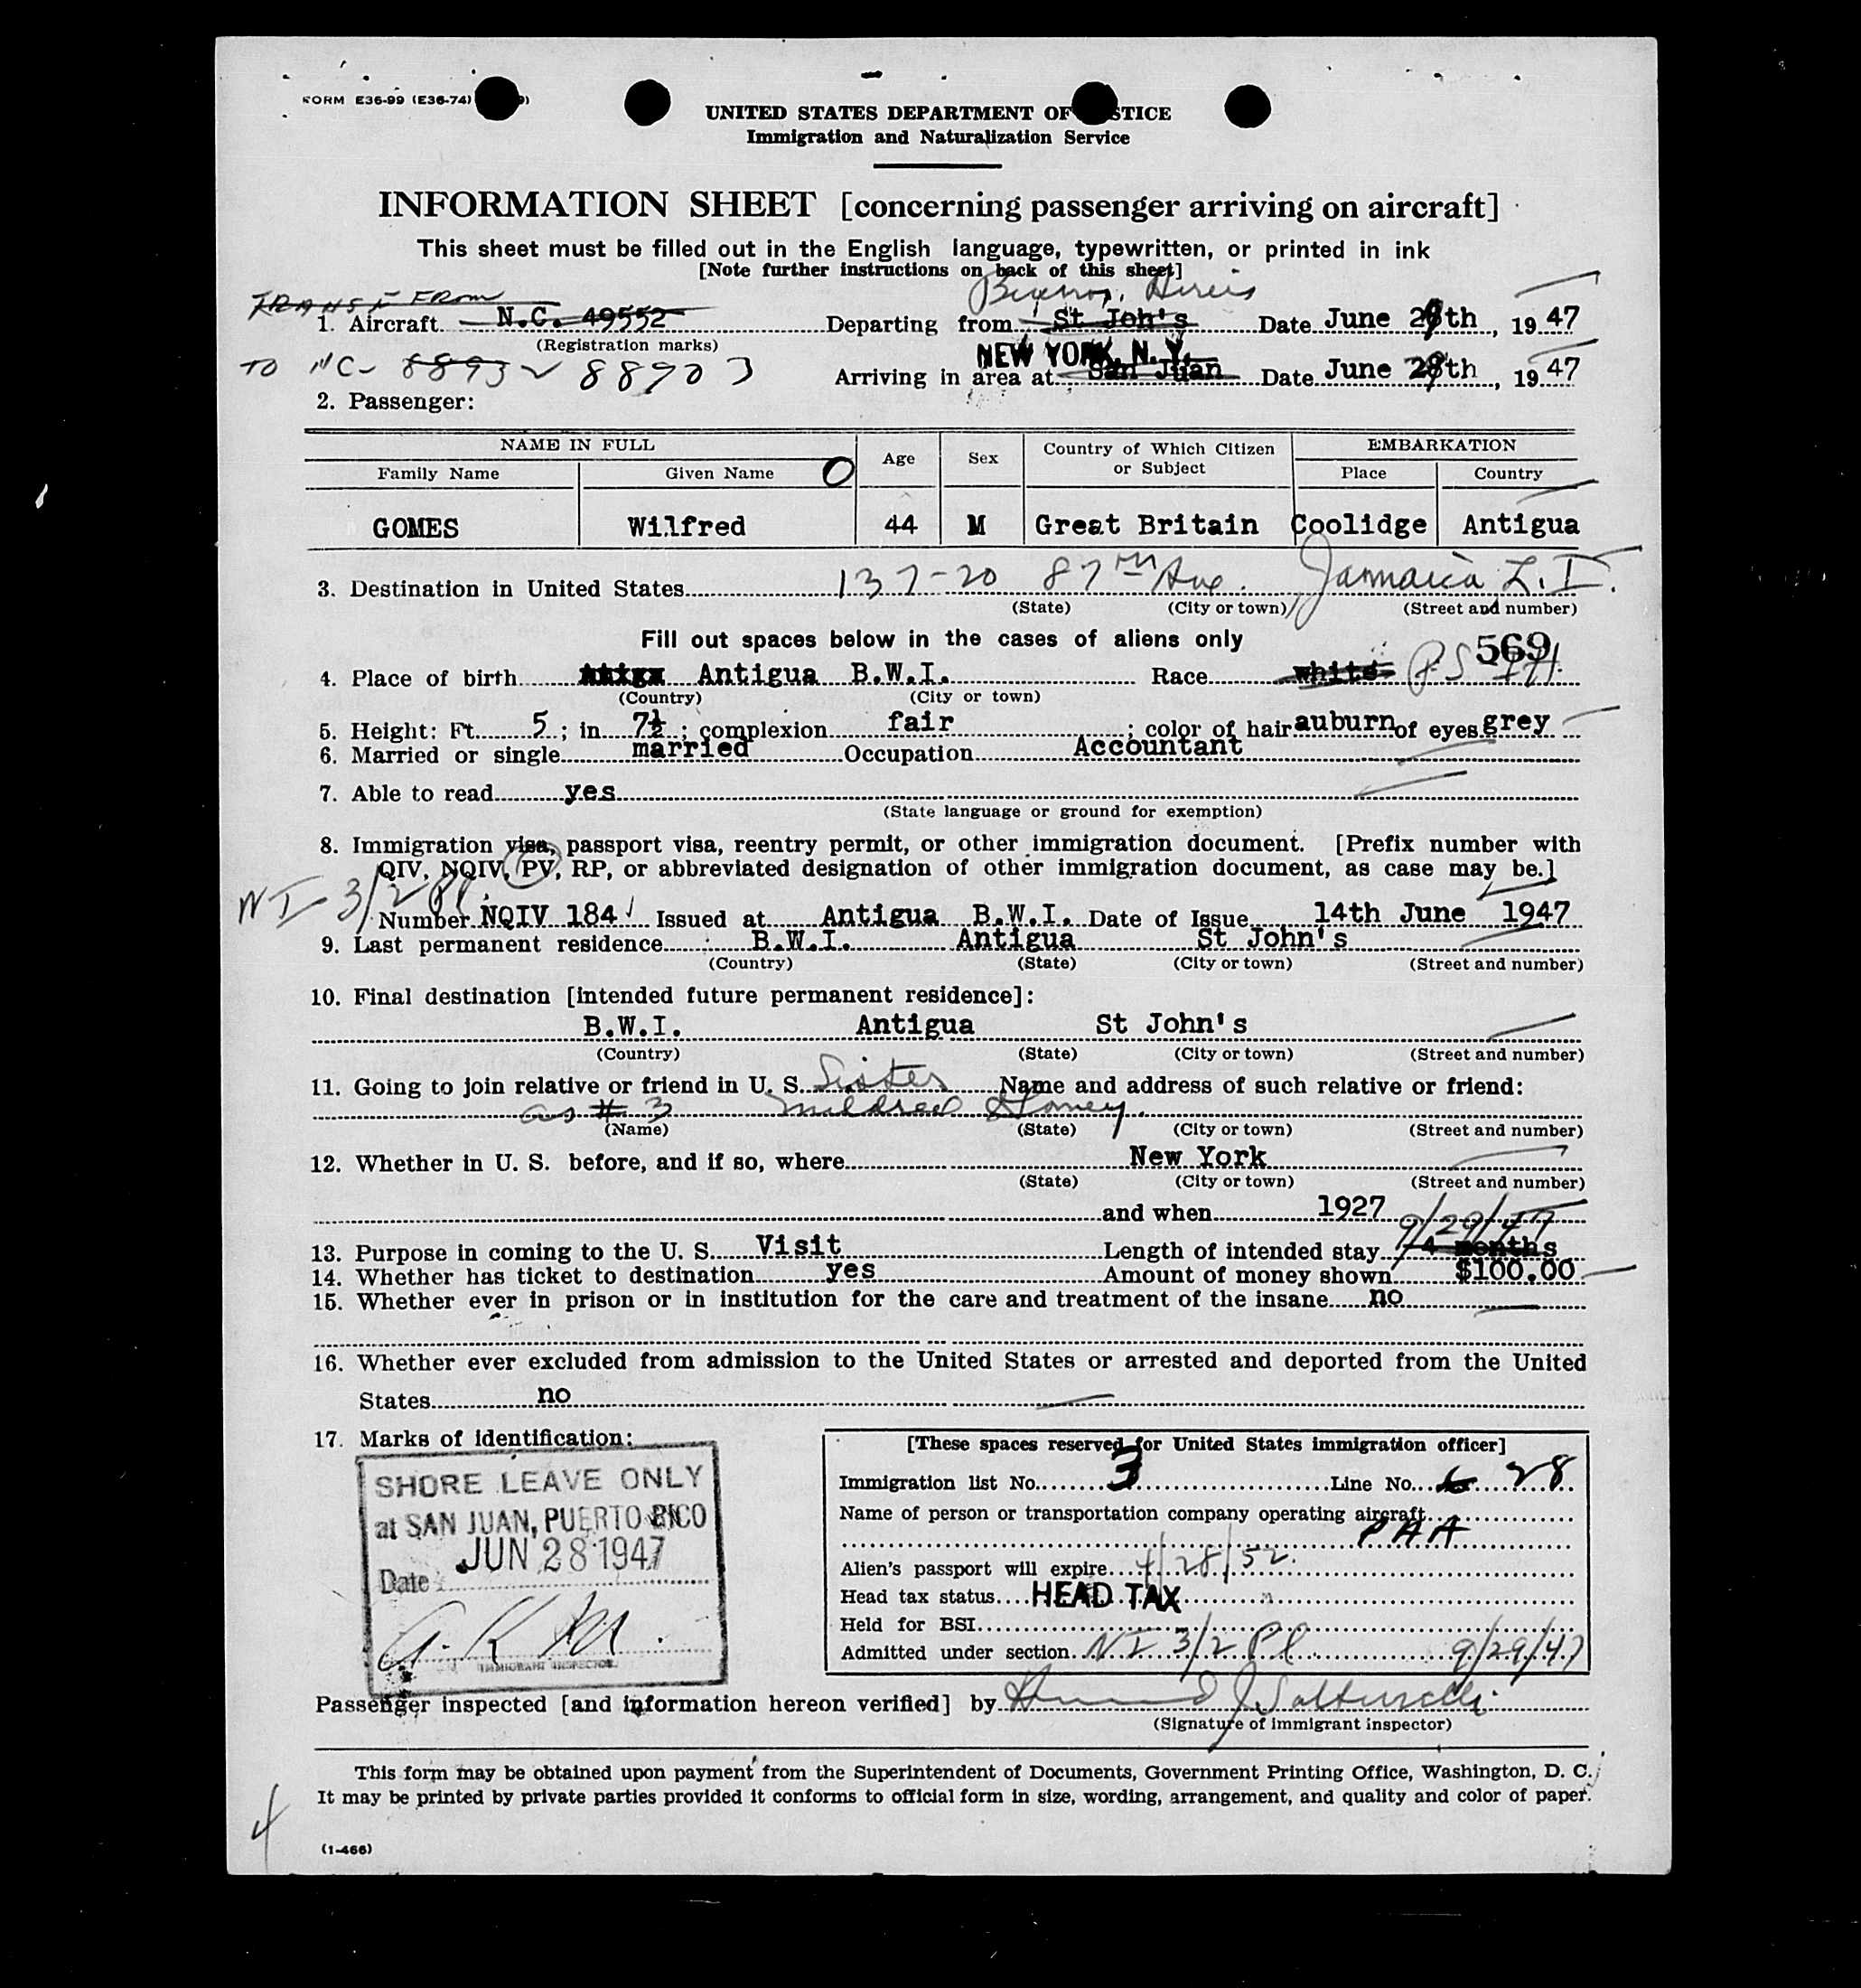 FORM E36-99 (E36-74)
UNITED STATES DEPARTMENT OF JUSTICE
Immigration and Naturalization Service
INFORMATION SHEET [concerning passenger arriving on aircraft]
This sheet must be filled out in the English language, typewritten, or printed in ink
[Note further instructions on back of this sheet]
TRANSF FROM
Buenos Aires
1. Aircraft N.C. 49552 Departing from St Joh's Date June 29th, 1947
(Registration marks)
NEW YORK, N.Y.
TO NC- 8893 88903 Arriving in area at San Juan Date June 29th, 1947
2. Passenger:
NAME IN FULL Age Sex Country of Which Citizen or Subject EMBARKATION
Family Name Given Name O Place Country
GOMES Wilfred 44 M Great Britain Coolidge Antigua
3. Destination in United States 137-20 87th Ave. Jamaica L.I.
(State) (City or town) (Street and number)
Fill out spaces below in the cases of aliens only
569
4. Place of birth Antigua B.W.I. Race white
(Country) (City or town)
5. Height: Ft. 5; in. 7½; complexion fair; color of hair auburn of eyes grey
6. Married or single married Occupation Accountant
7. Able to read yes
(State language or ground for exemption)
8. Immigration visa, passport visa, reentry permit, or other immigration document. [Prefix number with
QIV, NQIV, PV, RP, or abbreviated designation of other immigration document, as case may be.]
NI 3/2 Pl.
Number NQIV 184 Issued at Antigua B.W.I. Date of Issue 14th June 1947
9. Last permanent residence B.W.I. Antigua St John's
(Country) (State) (City or town) (Street and number)
10. Final destination [intended future permanent residence]:
B.W.I. Antigua St John's
(Country) (State) (City or town) (Street and number)
11. Going to join relative or friend in U. S. Sister Name and address of such relative or friend:
as # 3 Mildred
(Name) (State) (City or town) (Street and number)
12. Whether in U. S. before, and if so, where New York
(State) (City or town) (Street and number)
and when 1927
9/29/47
13. Purpose in coming to the U. S. Visit Length of intended stay 4 months
14. Whether has ticket to destination yes Amount of money shown $100.00
15. Whether ever in prison or in institution for the care and treatment of the insane no
16. Whether ever excluded from admission to the United States or arrested and deported from the United
States no
17. Marks of identification:
SHORE LEAVE ONLY
at SAN JUAN, PUERTO RICO
JUN 28 1947
Date
IMMIGRANT INSPECTOR
[These spaces reserved for United States immigration officer]
Immigration list No. 3 Line No. 6 28
Name of person or transportation company operating aircraft
PAA
Alien's passport will expire 4/28/52.
Head tax status HEAD TAX
Held for BSI
Admitted under section NI 3/2 Pl 9/29/47
Passenger inspected [and information hereon verified] by
(Signature of immigrant inspector)
This form may be obtained upon payment from the Superintendent of Documents, Government Printing Office, Washington, D. C.
It may be printed by private parties provided it conforms to official form in size, wording, arrangement, and quality and color of paper.
4
(1-466)